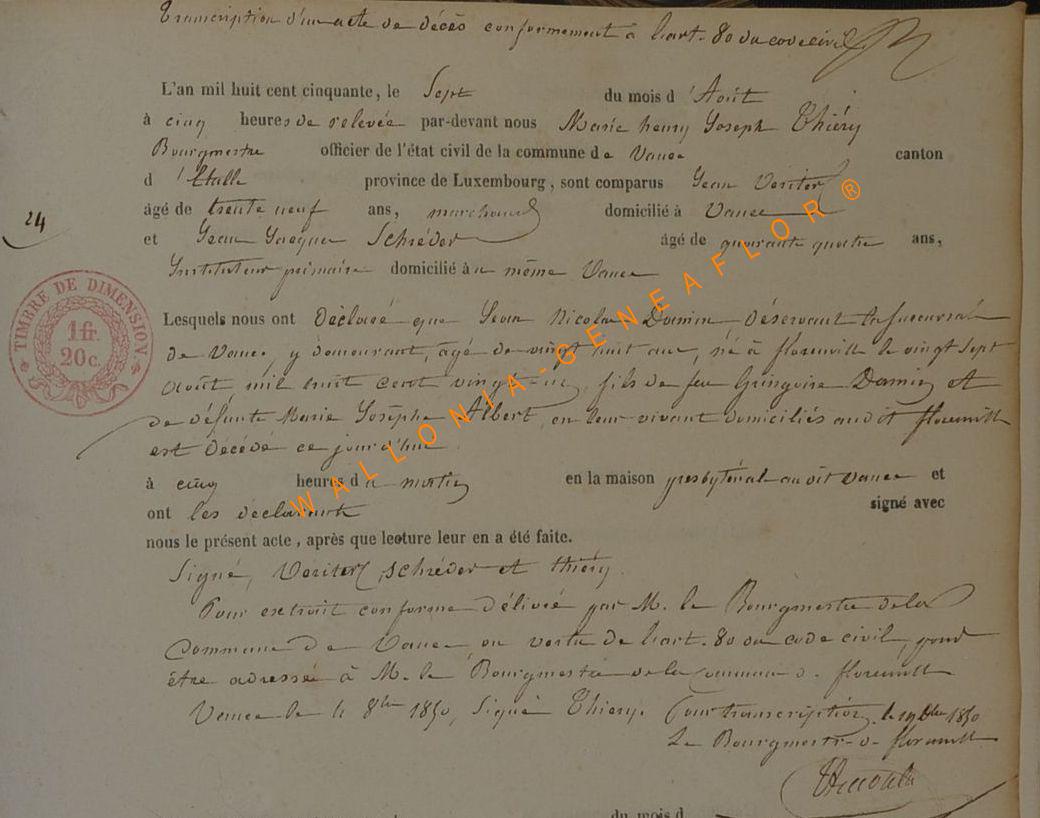 Transcription d'un acte de décès conformement à l'art. 80 du code civil.
L'an mil huit cent cinquante, le Sept du mois d'Août
à cinq heures de relevée par-devant nous Marie henry Joseph Thiéry
Bourgmestre officier de l'état civil de la commune de Vance canton
d'Etalle province de Luxembourg, sont comparus Jean Veriter
24
âgé de trente neuf ans, marchand domicilié à Vance
et Jean Jacques Schréder âgé de quarante quatre ans,
Instituteur primaire domicilié au même Vance
TIMBRE DE DIMENSION
1 fr.
20 c.
Lesquels nous ont Déclaré que Jean Nicolas Damin, Désservant la succursale
de Vance, y demeurant, agé de vingt huit ans, né à florenville le vingt Sept
août mil huit cent vingt-un, fils de feu Gringoire Damin et
de défunte Marie Josèphe Albert, en leur vivant domiciliés audit florenville
est décédé ce jourd'hui
à cinq heures du matin en la maison presbytérale audit Vance et
ont les déclarants signé avec
nous le présent acte, après que lecture leur en a été faite.
Signé, Veriter, Schréder et thiéry
Pour extrait conforme délivré par M. le Bourgmestre de la
Commune de Vance, en vertu de l'art. 80 du code civil, pour
être adressée à M. le Bourgmestre de la Commune de florenville
Vance le 4 8bre 1850, Signé Thiery. Pour transcription, le 8bre 1850
Le Bourgmestre de florenville
du mois d
WALLONIA-GENEAFLOR®